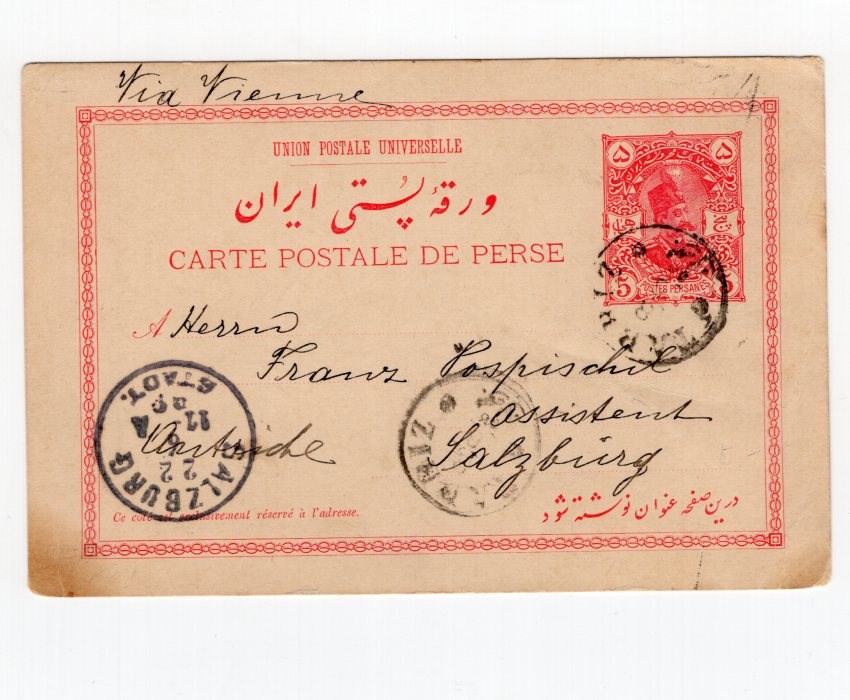 Via Vienne
UNION POSTALE UNIVERSELLE
ورقهٔ پُستی ایران
CARTE POSTALE DE PERSE
۵ ۵
5 POSTES PERSANES 5
A Herrn
Franz Pospischil
Assistent
Salzburg
Autriche
TABRIZ
TABRIZ
SALZBURG
STADT.
22
11
Ce coté est exclusivement réservé à l'adresse.
درین صفحه عنوان نوشته شود